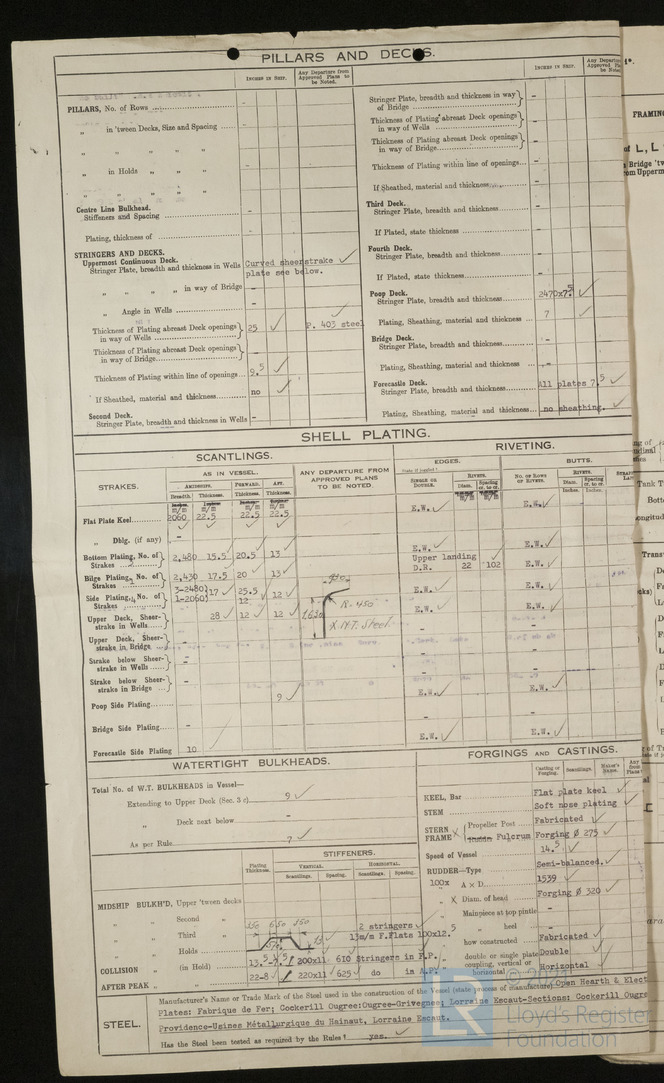 PILLARS AND DECKS.
INCHES IN SHIP.
Any Departure from Approved Plans to be Noted.
PILLARS, No. of Rows -
„ in 'tween Decks, Size and Spacing -
„ „ „ „ „ -
„ in Holds „ „ -
„ „ „ „ -
Centre Line Bulkhead.
Stiffeners and Spacing -
Plating, thickness of -
STRINGERS AND DECKS.
Uppermost Continuous Deck.
Stringer Plate, breadth and thickness in Wells Curved sheerstrake ✓
plate see below.
„ „ „ „ in way of Bridge -
„ Angle in Wells - ✓
Thickness of Plating abreast Deck openings in way of Wells 25 ✓ P. 403 steel
Thickness of Plating abreast Deck openings in way of Bridge -
Thickness of Plating within line of openings 9.5 ✓
If Sheathed, material and thickness no ✓
Second Deck.
Stringer Plate, breadth and thickness in Wells -
INCHES IN SHIP.
Any Departure Approved Pla be Noted
Stringer Plate, breadth and thickness in way of Bridge -
Thickness of Plating abreast Deck openings in way of Wells -
Thickness of Plating abreast Deck openings in way of Bridge -
Thickness of Plating within line of openings -
If Sheathed, material and thickness -
Third Deck.
Stringer Plate, breadth and thickness -
If Plated, state thickness -
Fourth Deck.
Stringer Plate, breadth and thickness -
If Plated, state thickness -
Poop Deck.
Stringer Plate, breadth and thickness 2470x7.5 ✓
Plating, Sheathing, material and thickness 7 ✓
Bridge Deck.
Stringer Plate, breadth and thickness -
Plating, Sheathing, material and thickness -
Forecastle Deck.
Stringer Plate, breadth and thickness All plates 7.5 ✓
Plating, Sheathing, material and thickness no sheathing. ✓
SHELL PLATING.
SCANTLINGS.
RIVETING.
STRAKES.
AS IN VESSEL.
AMIDSHIPS. FORWARD. AFT.
Breadth. Thickness. Thickness. Thickness.
m/m m/m m/m m/m
ANY DEPARTURE FROM APPROVED PLANS TO BE NOTED.
EDGES.
SINGLE OR DOUBLE.
RIVETS.
Diam. Spacing cr. to cr.
BUTTS.
NO. OF ROWS OF RIVETS.
RIVETS.
Diam. Spacing cr. to cr.
Inches. Inches.
Flat Plate Keel 2060 22.5 22.5 22.5 E.W. ✓ E.W. ✓
„ Dblg. (if any) -
Bottom Plating, No. of Strakes 2,480 15.5 20.5 13 E.W. ✓ E.W. ✓
Upper landing
D.R. 22 102
Bilge Plating, No. of Strakes 2,430 17.5 20 13 ✓ E.W. ✓
Side Plating, No. of Strakes 3-2480 1-2060 17 ✓ 25.5 12 12 ✓ E.W. ✓ E.W. ✓
Upper Deck, Sheerstrake in Wells 28 ✓ 12 ✓ 12 ✓ E.W. ✓ E.W. ✓
R-450
X H.T. Steel.
Upper Deck, Sheerstrake in Bridge -
Strake below Sheerstrake in Wells -
Strake below Sheerstrake in Bridge -
Poop Side Plating 9 ✓ E.W. ✓ E.W. ✓
Bridge Side Plating -
Forecastle Side Plating 10 E.W. ✓ E.W. ✓
WATERTIGHT BULKHEADS.
Total No. of W.T. BULKHEADS in Vessel—
Extending to Upper Deck (Sec. 3 c) 9 ✓
„ Deck next below -
As per Rule 7 ✓
Plating Thickness.
STIFFENERS.
VERTICAL. HORIZONTAL.
Scantlings. Spacing. Scantlings. Spacing.
MIDSHIP BULKH'D, Upper 'tween decks
„ „ Second „
„ „ Third „ 2 stringers ✓
„ „ Holds 13m/m F.Flats 100x12.5
COLLISION „ (in Hold) 200x11 610 Stringers in F.P.
AFTER PEAK „ „ 22-8 220x11 625 do in A.P.
FORGINGS AND CASTINGS.
Casting or Forging. Scantlings. Maker's Name.
KEEL, Bar Flat plate keel ✓
STEM Soft nose plating ✓
STERN FRAME Propeller Post Fabricated ✓
Fulcrum Forging Ø 275 ✓
Speed of Vessel 14.5 ✓
RUDDER—Type Semi-balanced. ✓
100x A x D 1539 ✓
„ X Diam. of head Forging Ø 320 ✓
Mainpiece at top pintle -
„ heel -
how constructed Fabricated ✓
double or single plate Double ✓
coupling, vertical or horizontal Horizontal ✓
STEEL.
Manufacturer's Name or Trade Mark of the Steel used in the construction of the Vessel (state process of manufacture) Open Hearth & Elect
Plates: Fabrique de Fer; Cockerill Ougree:Ougree-Grivegnee; Lorraine Escaut-Sections: Cockerill Ougre
Providence-Usines Métallurgique du Hainaut, Lorraine Escaut.
Has the Steel been tested as required by the Rules? yes. ✓
FRAMING
Lloyd's Register
Foundation